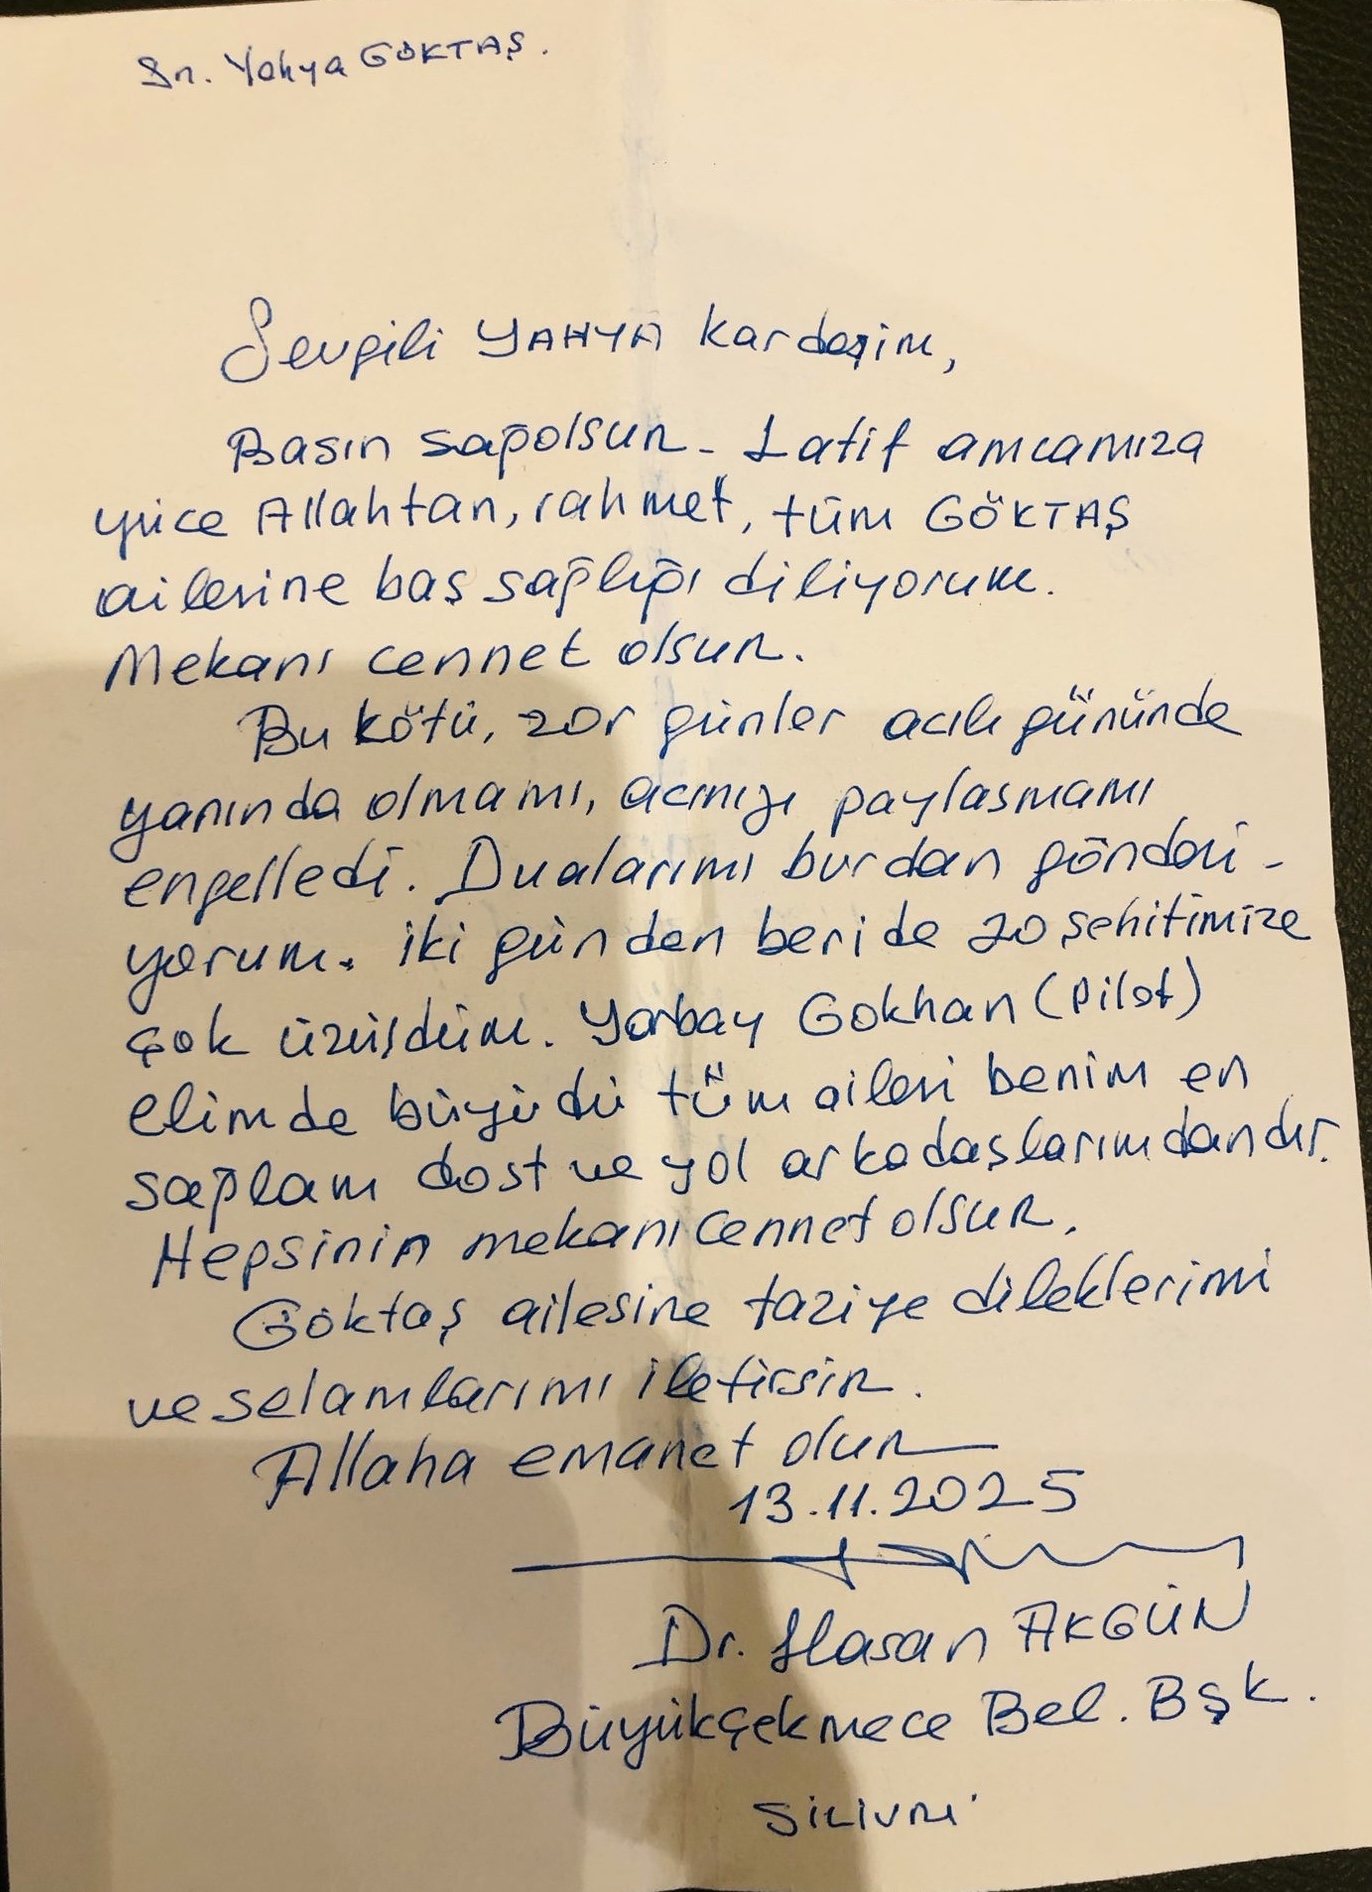 Sn. Yahya GÖKTAŞ.
Sevgili YAHYA kardeşim,
Basın sağolsun. Latif amcamıza
yüce Allahtan, rahmet, tüm GÖKTAŞ
ailesine baş sağlığı diliyorum.
Mekanı cennet olsun.
Bu kötü, zor günler acılı gününde
yanında olmamı, acınızı paylasmamı
engelledi. Dualarımı burdan gönderi-
yorum. iki günden beri de 20 şehitimize
çok üzüldüm. Yarbay Gökhan (pilot)
elimde büyüdü tüm ailesi benim en
sağlam dost ve yol arkadaşlarımdandır.
Hepsinin mekanı cennet olsun.
Göktaş ailesine taziye dileklerimi
ve selamlarımı iletirsin.
Allaha emanet olun
13.11.2025
Dr. Hasan AKGÜN
Büyükçekmece Bel. Bşk.
SİLİVRİ